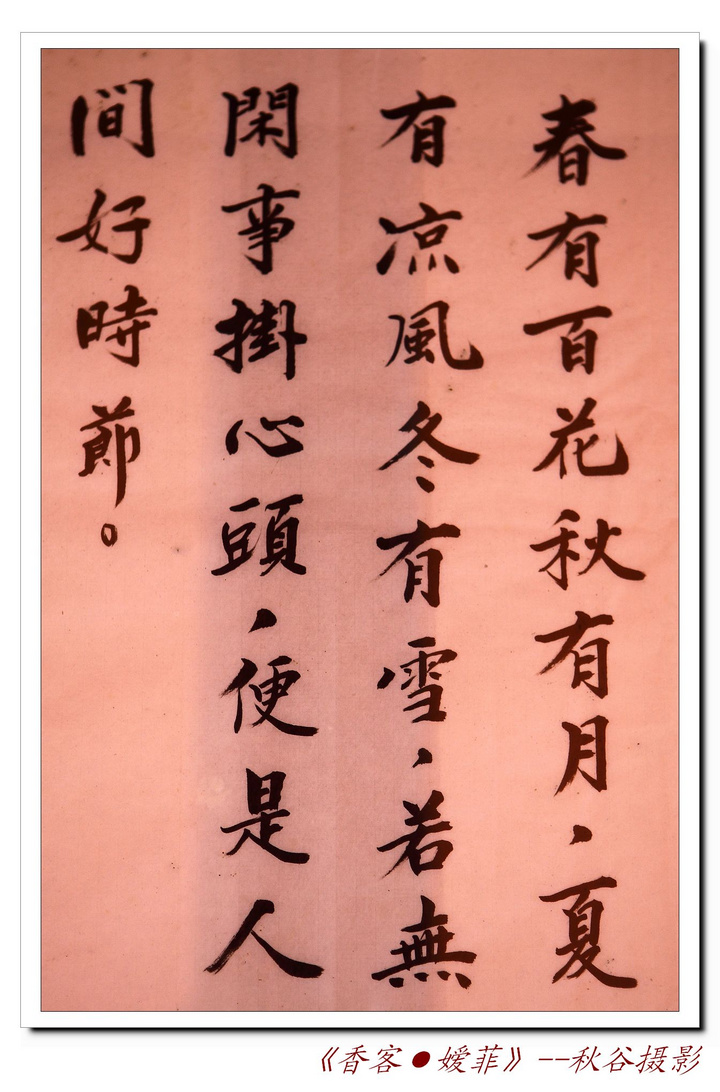 春有百花秋有月，夏
有凉風冬有雪，若無
閑事掛心頭，便是人
間好時節。
《香客●嫒菲》--秋谷摄影